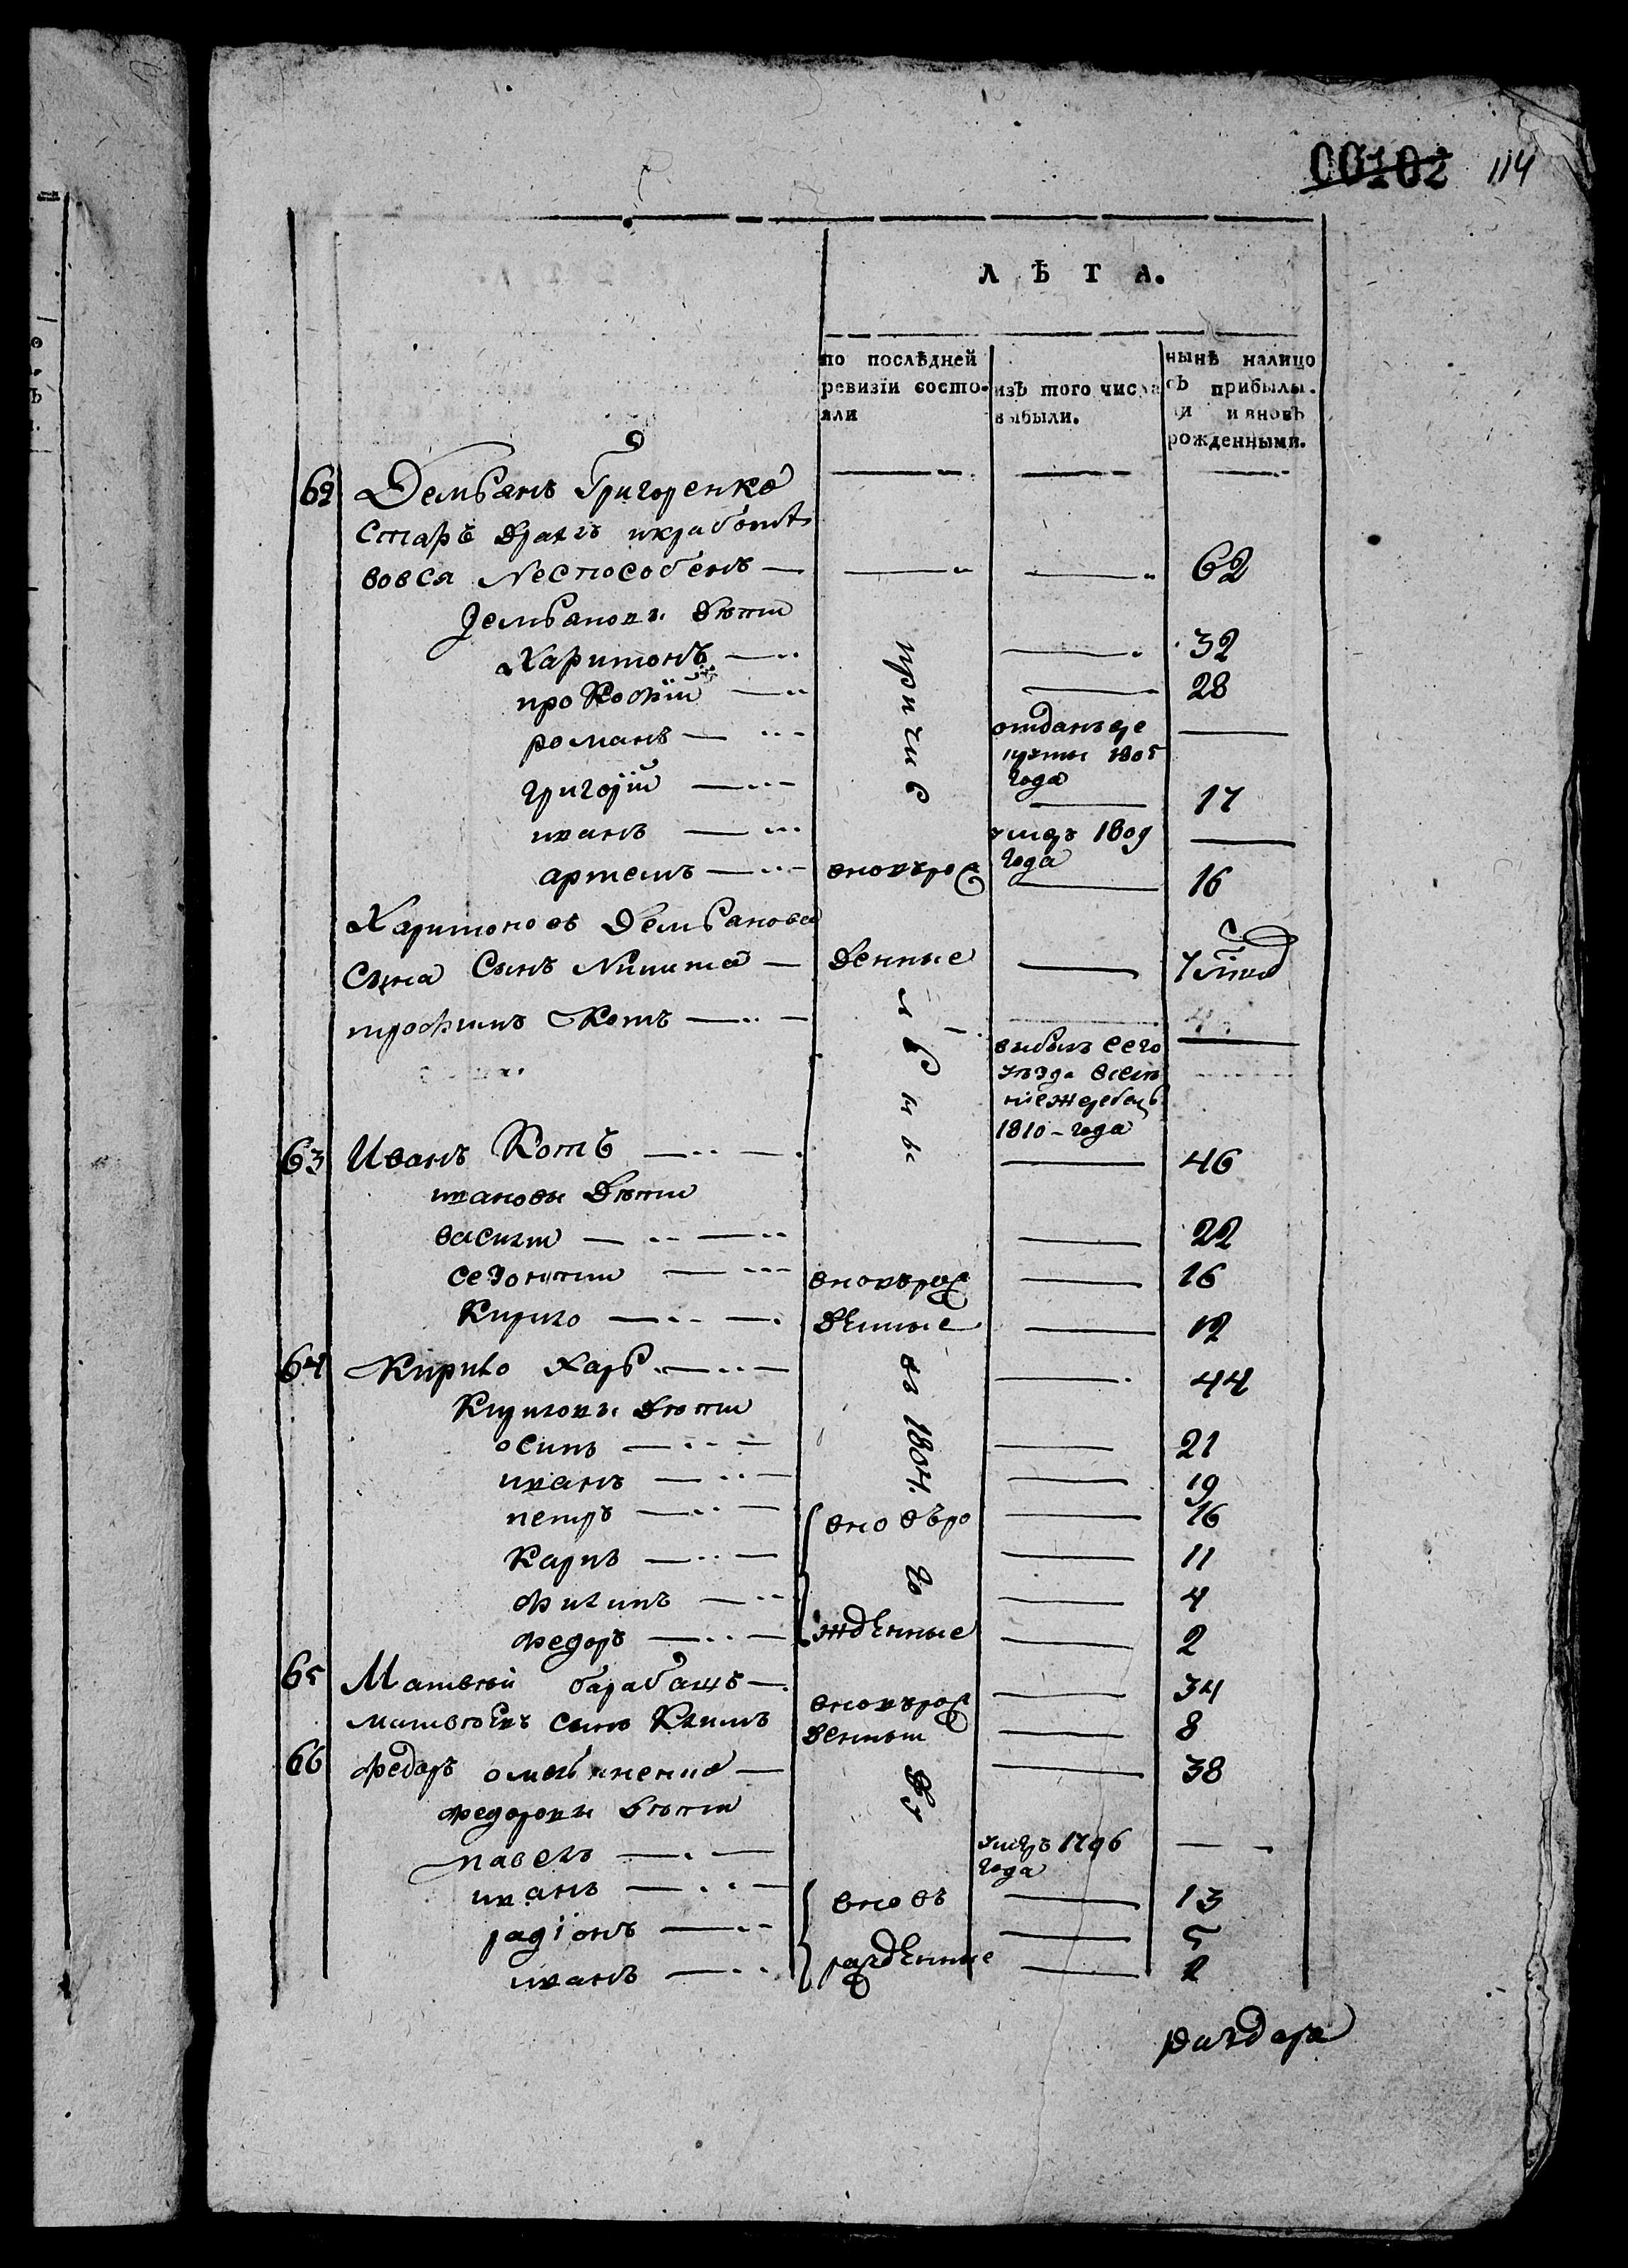 00102 114
ЛѢТА.
по послѣдней
ревизіи состо-
яли
изъ того числа
выбыли.
нынѣ налицо
съ прибылы.
ми и вновь
рожденными.
62 Демьянъ Григоренко
старъ дряхлъ и къ работѣ
вовся неспособенъ — 62
Демьяновы дѣти
Харитонъ — 32
прокофій — 28
романъ — отданъ въ ре
круты 1805
года
григорій — 17
иванъ — умеръ 1809
года
артемъ — вновь рож 16
Харитоновъ Демьянова
сына сынъ Никита — денные
трофимъ Котъ — выбылъ сего
уѣзда въ селе
ніе жеребецъ
1810 - года
причис
лѣны
63 Иванъ Котъ — 46
ивановы дѣти
василій — 22
вновь рож 16
Кирило — денные 12
64 Кирило Харь — 44
Кириловы дѣти
осипъ — 21
иванъ — 19
петръ — вновь ро 16
карпъ — 11
филипъ — 4
федоръ — жденные 2
въ 1804.
65 Матвѣй барабашъ — 34
матвѣевъ сынъ Климъ вновь рож
денный 8
66 федоръ омельяненко — 38
федоровы дѣти
павелъ — умеръ 1796
года
иванъ — вновь 13
радіонъ — 5
иванъ — рожденные 2